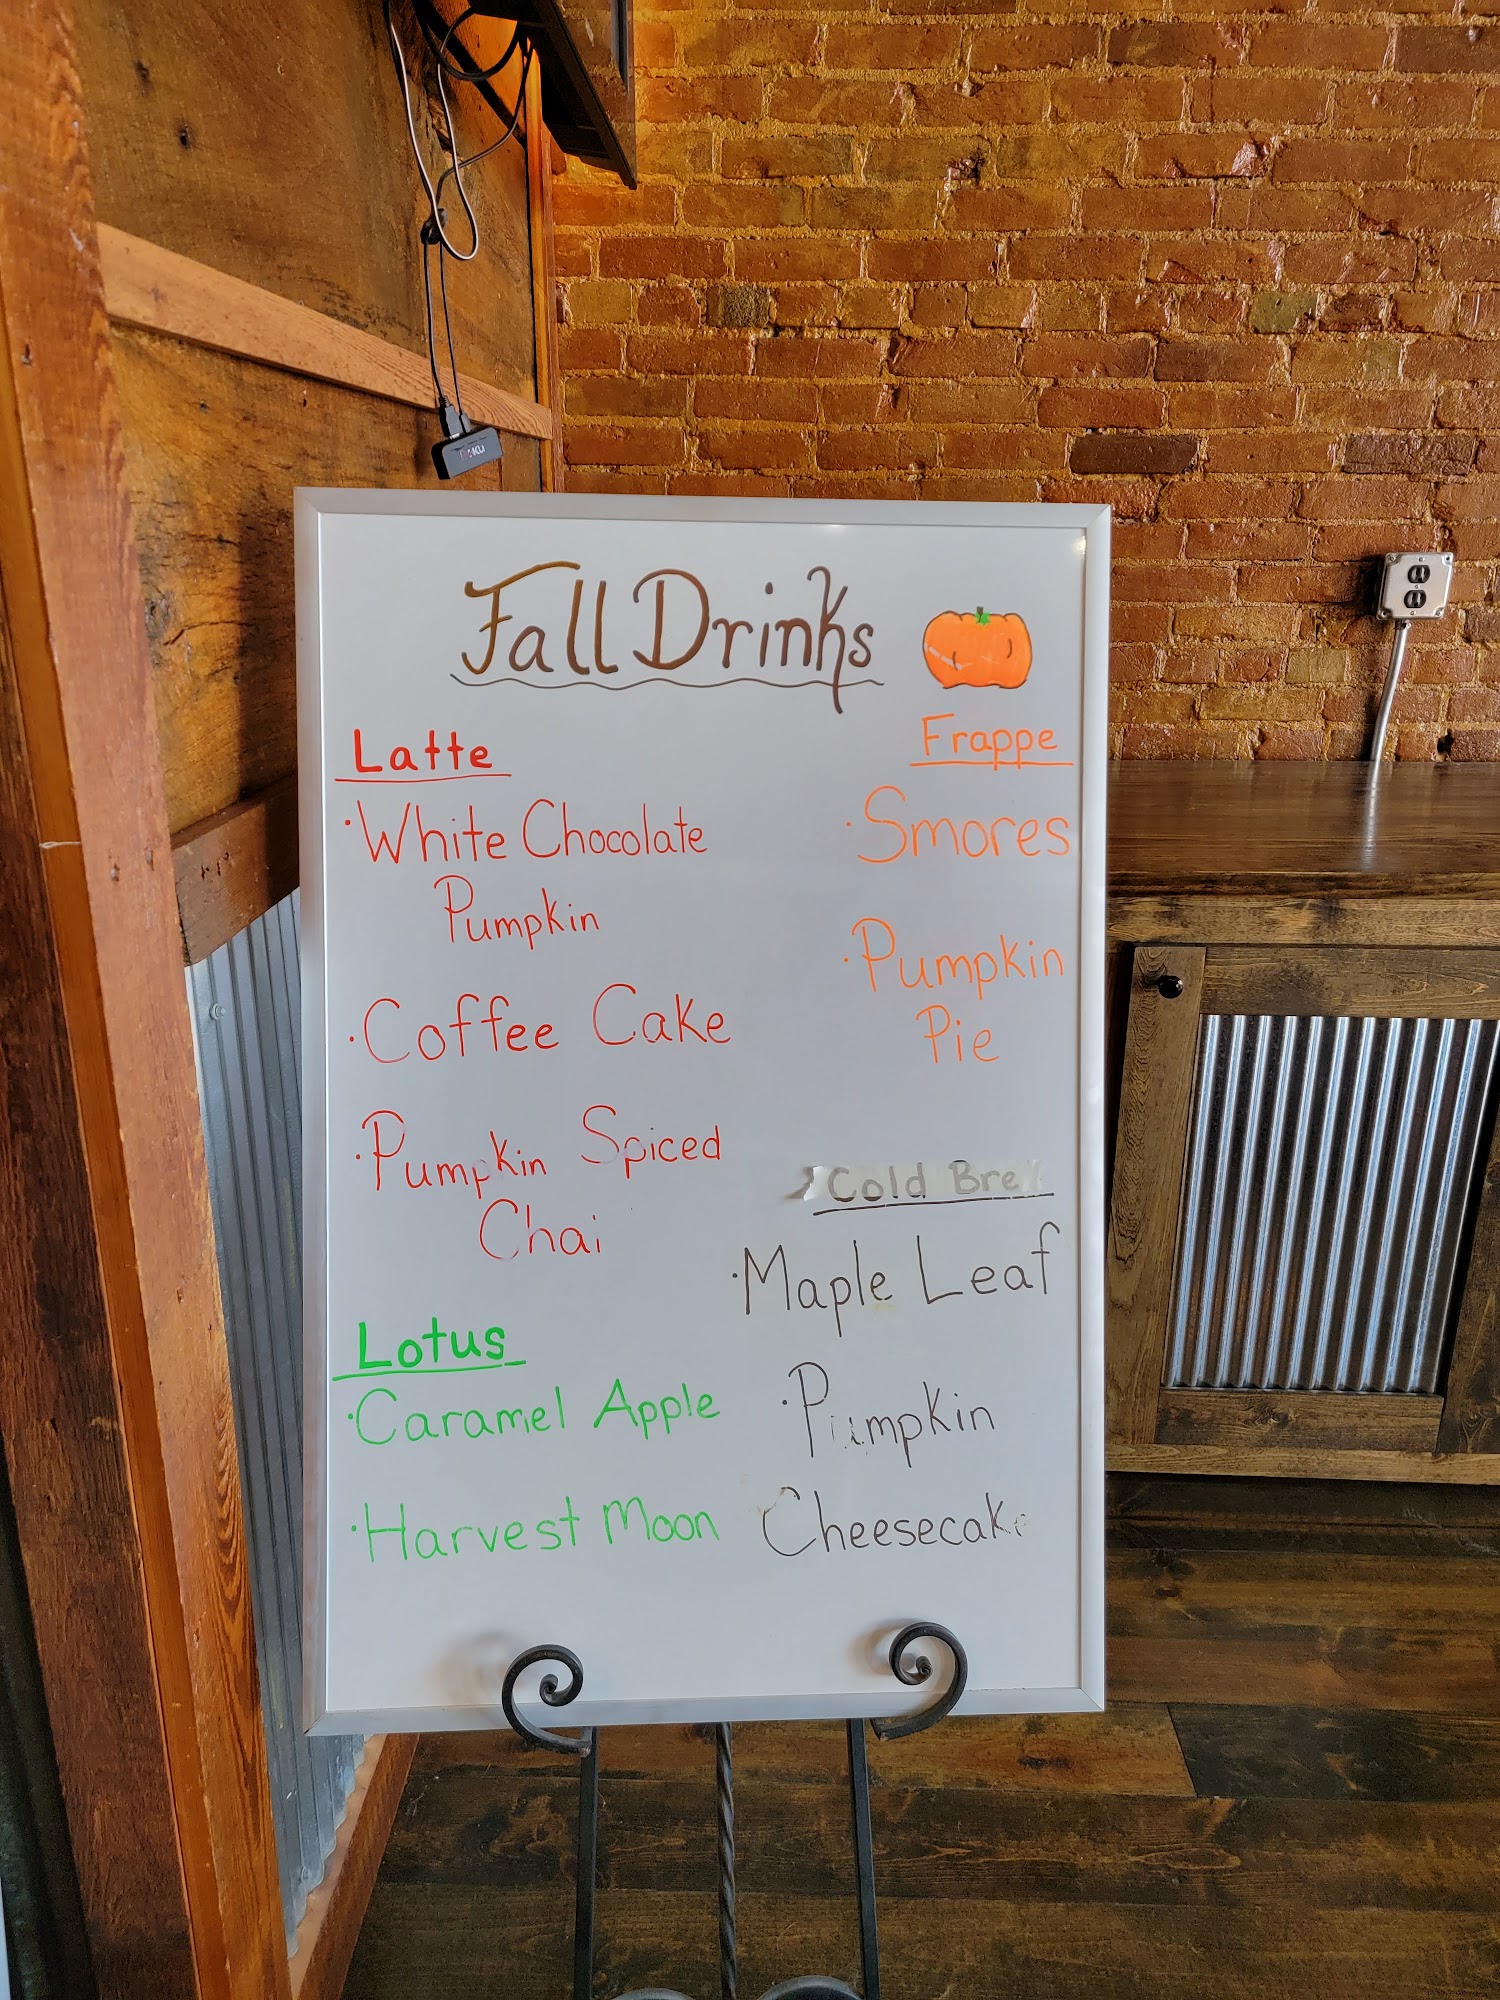 ROKU
Fall Drinks
Latte
·White Chocolate
Pumpkin
·Coffee Cake
·Pumpkin Spiced
Chai
Lotus
·Caramel Apple
·Harvest Moon
Frappe
·Smores
·Pumpkin
Pie
Cold Bre
·Maple Leaf
·Pumpkin
Cheesecake